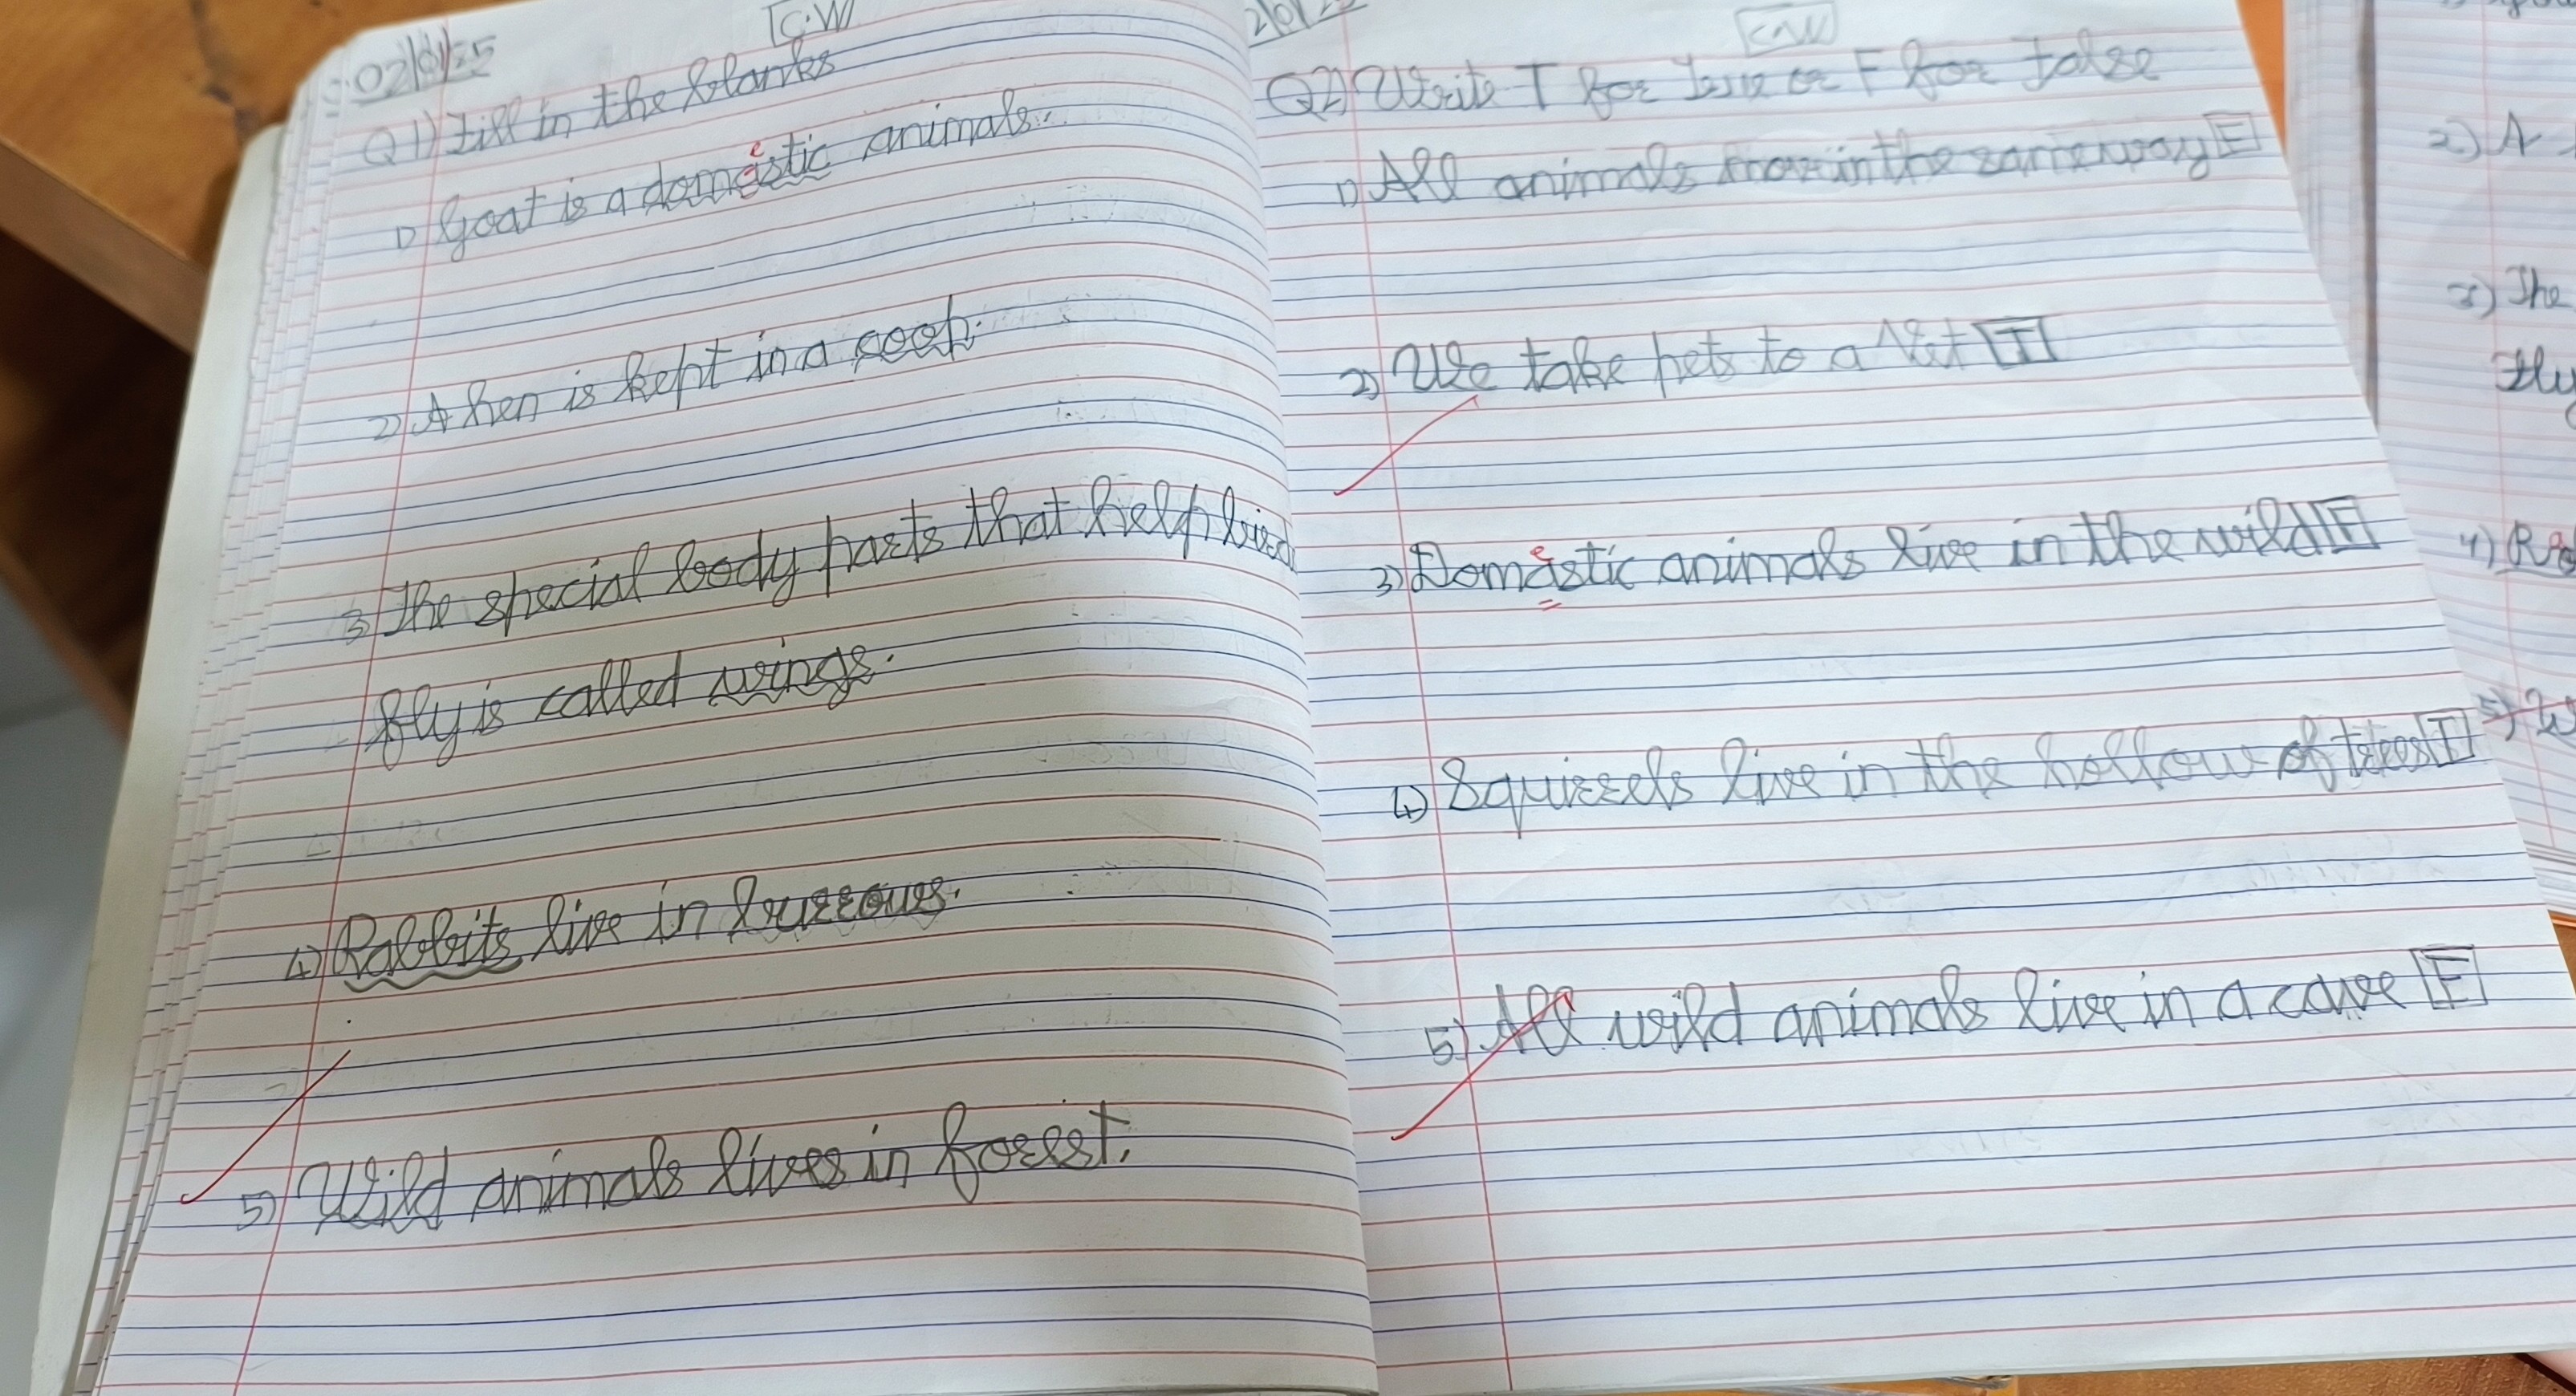 C.W
Q1) Fill in the blanks
1) Goat is a domastic animals.
e
2) A hen is kept in a coop.
3) The special body parts that help bird
fly is called wings.
4) Rabbits live in burrows.
5) Wild animals lives in forest.
C.W
Q2) Write T for True or F for false
1) All animals move in the same way F
2) We take pets to a Vet T
3) Domastic animals live in the wild F
e
4) Squirrels live in the hollow of trees T
5) All wild animals live in a cave F
2) A
3) The
fly
4)
5)